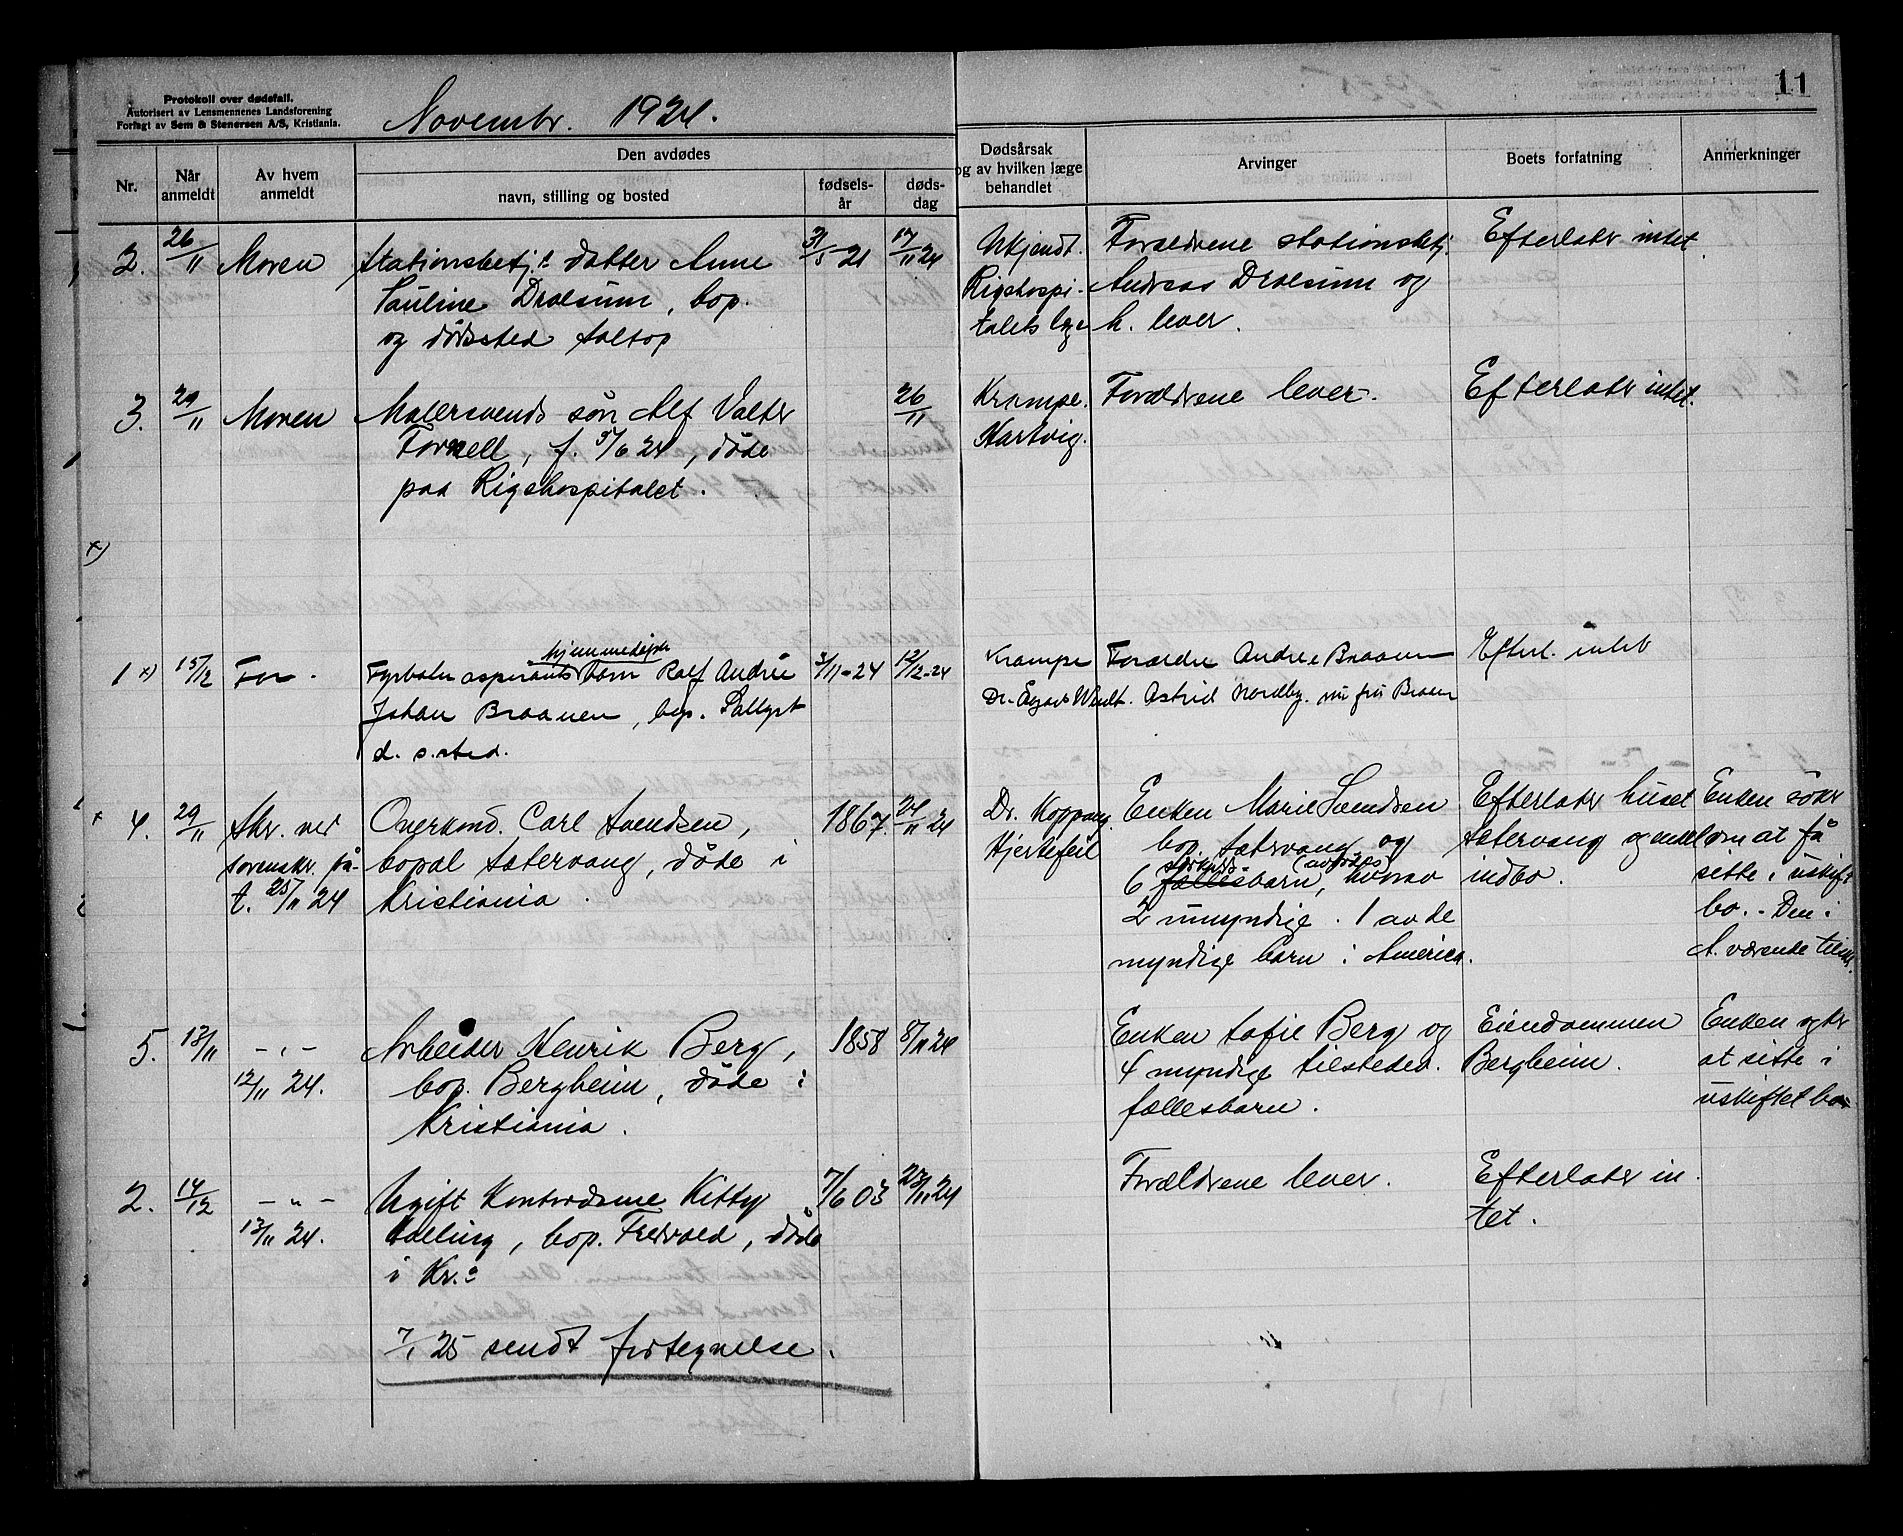 Protokoll over dødsfall.
Autorisert av Lensmennenes Landsforening
Forlagt av Sem & Stenersen A/S, Kristiania.
Novembr. 1924.
11
Nr.
Når anmeldt
Av hvem anmeldt
Den avdødes
navn, stilling og bosted
fødsels-år
døds-dag
Dødsårsak og av hvilken læge behandlet
Arvinger
Boets forfatning
Anmerkninger
2. 26/11 Moren Stationsbetj.s datter Anne 31/5-21 17/11 24 Ukjendt. Forældrene stationsbetj. Efterlater intet
Pauline Drolsum, bop. Rigshospi- Andreas Drolsum og
og dødssted Soltop talets læge h. lever.
3. 29/11 Moren Malersvends søn Alf Valter 26/11 Krampe. Forældrene lever. Efterlater intet.
Fornell, f. 5/6 24, døde Hartvig.
paa Rigshospitalet.
x)
hjemmedøpt
1 x) 15/12 Far. Fyrbøteraspirants barn Rolf Andrie 3/11-24 12/12-24 Krampe Forældre Andrie Braanen Efterl. intet
Johan Braanen, bop. Solbyst Dr. Wendt. Astrid Nordby. nu fru Braaen
d. s.sted.
x 4. 29/11 Skr. ved Overkond. Carl Svendsen, 1867. 24/11 24 Dr. Koppang. Enken Marie Svendsen Efterlater huset Enken søker
sorenskr. på- bopæl Sætervang, døde i Hjertefeil bop. Sætervang og Sætervang og endel om at få
t. 25/11 24 Kristiania. 6 fællesbarn, hvorav indbo. sitte i uskift
2 umyndige. 1 av de bo. - Den i
myndige barn i America. A. værende
5. 13/11 - " - Arbeider Henrik Berg, 1858 8/11 24 Enken Sofie Berg og Eiendommen Enken søker
12/11 24. bop. Bergheim, døde i 4 myndige tilstedev. Bergheim. at sitte i
Kristiania. fællesbarn. uskiftet bo
2. 14/12 - " - Ugift Kontordame Kitty 7/6 03 23/11 24 Forældrene lever. Efterlater in
13/11 24. bop. Fredvold, døde tet.
i Kr.a
7/1 25 sendt fortegnelse.